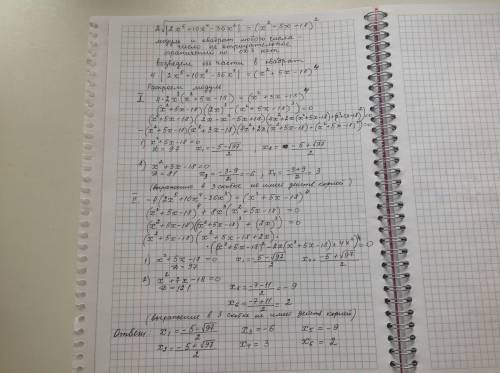 2√|2x⁵+10x⁴-36x³| = (x²-5x+18)²
модуль и квадрат любого числа -
число не отрицательное
ограничений по ОХ нет
возведем обе части в квадрат
4·|2x⁵+10x⁴-36x³| = (x²+5x-18)⁴
Раскроем модуль
I. 4·2x³(x²+5x-18) = (x²+5x-18)⁴
(x²+5x-18)((2x)³-(x²+5x-18)³)=0
1) x²+5x-18=0
D=97 x₁=(-5-√97)/2 x₂=(-5+√97)/2
2) x²+3x-18=0
D=81 x₃=(-3-9)/2=-6; x₄=(-3+9)/2=3
(выражение в 3 скобке не имеет действ корней)
II. -8(2x⁵+10x⁴-36x³)=(x²+5x-18)⁴
(x²+5x-18)((x²+5x-18)³+(2x)³)=0
(x²+5x-18)(x²+5x-18+2x)·
·((x²+5x-18)²-2x(x²+5x-18)+4x²)=0
1) x²+5x-18=0 x₁=(-5-√97)/2 x₂=(-5+√97)/2
D=97
2) x²+7x-18=0 x₅=(-7-11)/2=-9
D=121
x₆=(-7+11)/2=2
(выражение в 3 скобке не имеет действ корней)
Ответ: x₁=(-5-√97)/2 x₃=-6 x₅=-9
x₂=(-5+√97)/2 x₄=3 x₆=2